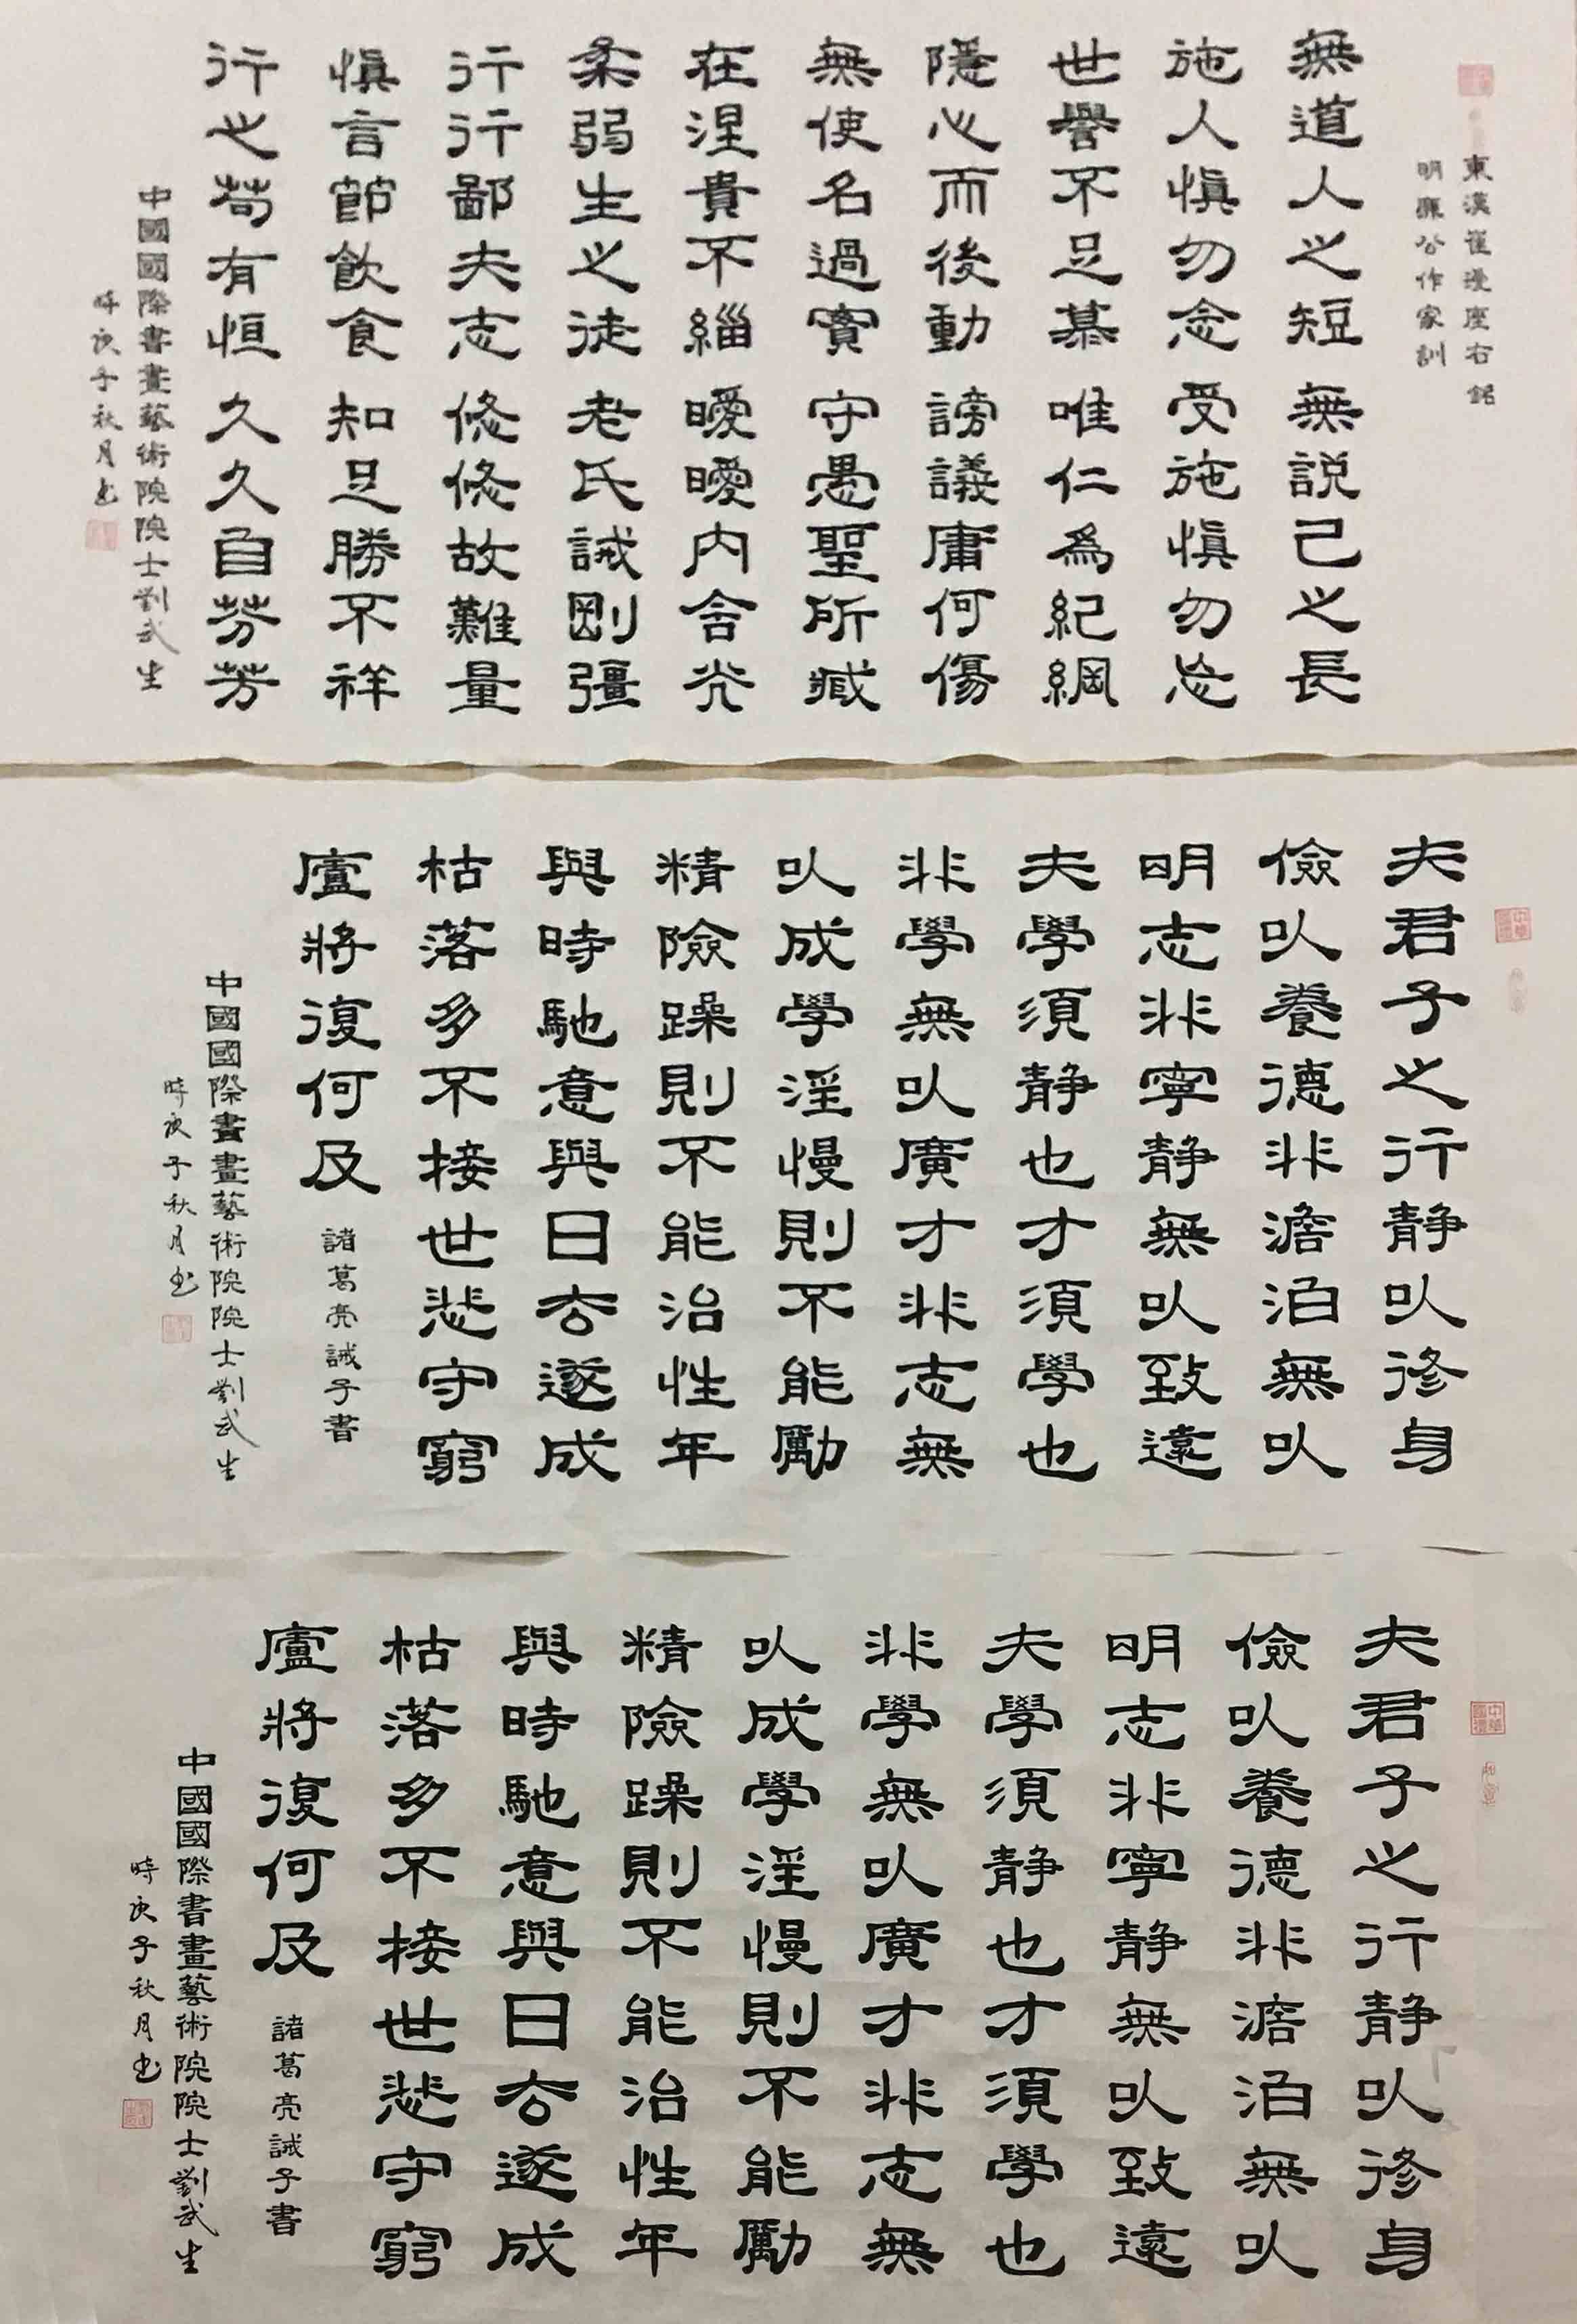 東漢崔瑗座右銘
明廉公作家訓
無道人之短無説己之長
施人慎勿念受施慎勿忘
世譽不足慕唯仁為紀綱
隱心而後動謗議庸何傷
無使名過實守愚聖所臧
在涅貴不緇曖曖内含光
柔弱生之徒老氏誡剛彊
行行鄙夫志悠悠故難量
慎言節飲食知足勝不祥
行之苟有恒久久自芬芳
中國國際書畫藝術院院士劉武生
時庚子秋月書
夫君子之行静以修身
儉以養德非澹泊無以
明志非寧静無以致遠
夫學須静也才須學也
非學無以廣才非志無
以成學淫慢則不能勵
精險躁則不能治性年
與時馳意與日去遂成
枯落多不接世悲守窮
廬將復何及
諸葛亮誡子書
中國國際書畫藝術院院士劉武生
時庚子秋月書
夫君子之行静以修身
儉以養德非澹泊無以
明志非寧静無以致遠
夫學須静也才須學也
非學無以廣才非志無
以成學淫慢則不能勵
精險躁則不能治性年
與時馳意與日去遂成
枯落多不接世悲守窮
廬將復何及
諸葛亮誡子書
中國國際書畫藝術院院士劉武生
時庚子秋月書